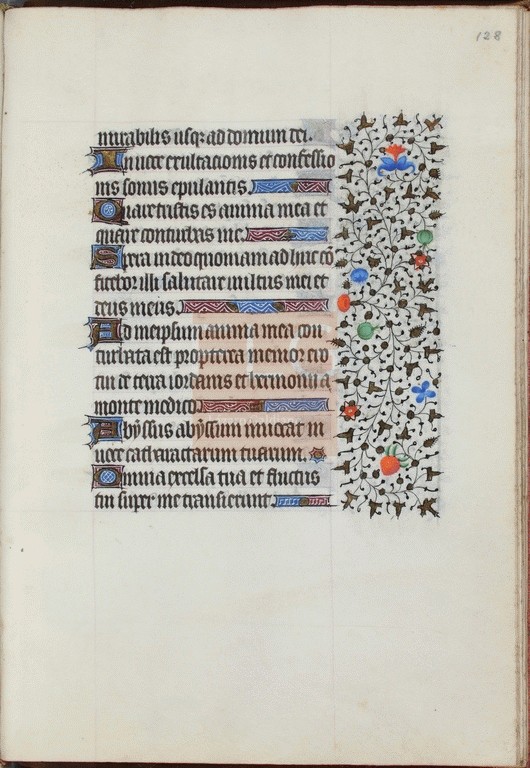 128
mirabilis usq; ad domum dei.
In uoce exultacionis et confessio
nis sonus epulantis.
Quare tristis es anima mea et
quare conturbas me.
Spera in deo quoniam adhuc co
fitebor illi salutare uultus mei et
deus meus.
Ad meipsum anima mea con
turbata est propterea memor ero
tui de terra iordanis et hermonii a
monte modico.
Abyssus abyssum inuocat in
uoce catharactarum tuarum.
Omnia excelsa tua et fluctus
tui super me transierunt.